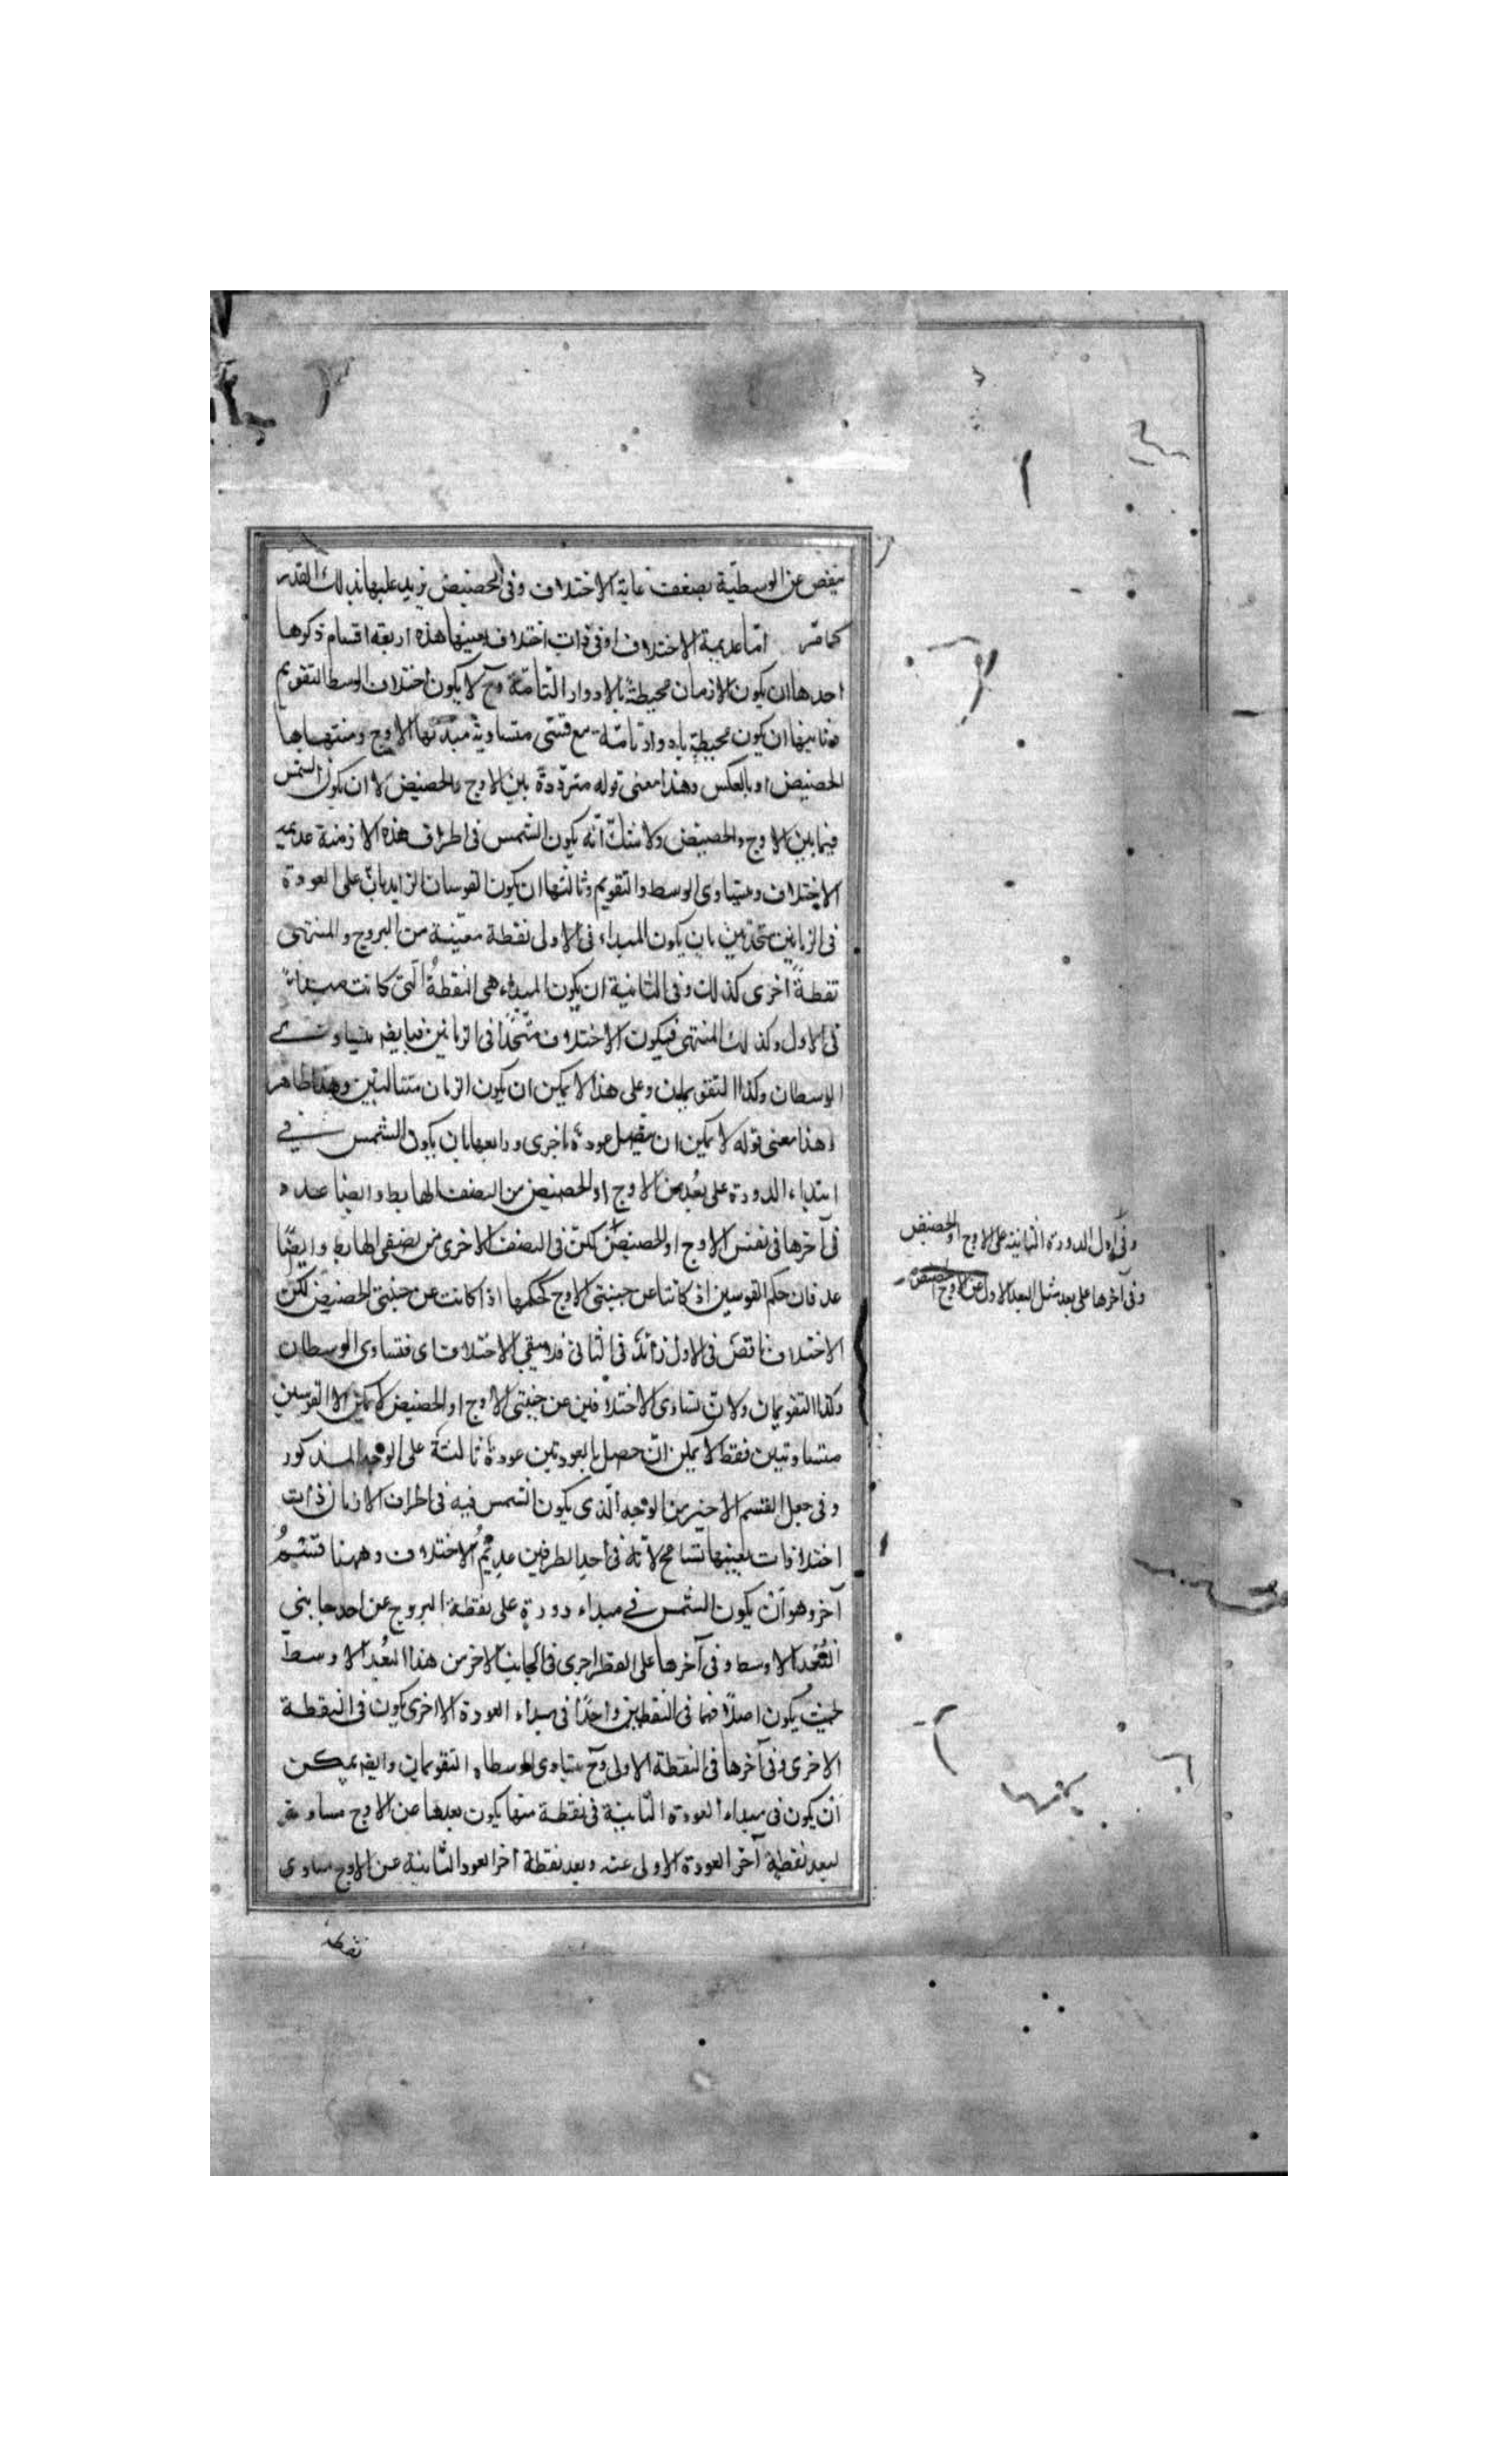 ينقص عن الوسطية بضعف غاية الاختلاف وفى الحضيض يزيد عليها بذلك القدر
كما مر اما عديمة الاختلاف او فى ذات اختلاف بعينها هذه اربعة اقسام ذكرها
احدها ان يكون الازمان محيطة بالادوار التامة وح لا يكون اختلاف الوسط التقويم
وثانيها ان يكون محيطة بادوار تامة مع قسى متساوية مبدئها الاوج ومنتهاها
الحضيض او بالعكس وهذا معنى قوله مترددة بين الاوج والحضيض لا ان يكون الشمس
فيما بين الاوج والحضيض ولا شك انه يكون الشمس فى اطراف هذه الازمنة عديمة
الاختلاف ومتساوى الوسط والتقويم وثالثها ان يكون القوسان الزايدتان على العودة
فى الزمانين متحدتين بان يكون المبداء فى الاولى نقطة معينة من البروج والمنتهى
نقطة اخرى كذلك وفى الثانية ان يكون المبداء هى النقطة التى كانت مبداء
فى الاول وكذلك المنتهى فيكون الاختلاف متحدا فى الزمانين فيايضه متساوى
الوسطان وكذا التقويمان وعلى هذا لا يمكن ان يكون الزمان متتاليين وهذا ظاهر
وهذا معنى قوله لا يمكن ان يتصل عودة باخرى ورابعها بان يكون الشمس فى
ابتداء الدورة على بعد من الاوج او الحضيض من النصف الهابط وايضا عده
فى آخرها فى نفس الاوج او الحضيض لكن فى النصف الاخرى من نصفى الهابط وايضا
عد فان حكم القوسين اذ كانتا عن جنبتى الاوج كحكمها اذا كانت عن جنبتى الحضيض لكن
الاختلاف ناقص فى الاول زائد فى الثانى فلا يبقى الاختلاف اى فتساوى الوسطان
وكذا التقويمان ولان تساوى الاختلافين عن جنبتى الاوج او الحضيض لا يمكن الا القوسين
متساويتين فقط لا يمكن ان حصل بالعودتين عودة ثالثة على الوجه المذكور
وفى جعل القسم الاخير من الوجه الذى يكون الشمس فيه فى اطراف الازمان ذات
اختلافات بعينها تسامح لانه فى احد الطرفين عديم الاختلاف وههنا قسم
آخر وهو ان يكون الشمس فى مبداء دورة على نقطة البروج عن احد جانبى
البعد الاوسط وفى آخرها على اخرى فى الجانب الاخر من هذا البعد الاوسط
بحيث يكون اصلافها فى النقطتين واحدا فى مبداء العودة الاخرى يكون فى النقطة
الاخرى وفى آخرها فى النقطة الاولى وح يتساوى الوسطان التقويمان وايضه يمكن
ان يكون فى مبداء العودة الثانية فى نقطة منها يكون بعدها عن الاوج مساوية
لبعد نقطة آخر العودة الاولى عنه وبعد نقطة آخر العود الثانية عن الاوج مساوى
نقطة
وفى اول الدورة الثانية على الاوج او الحضيض
وفى آخرها على بعد مثل البعد الاول عن الاوج الحضيض